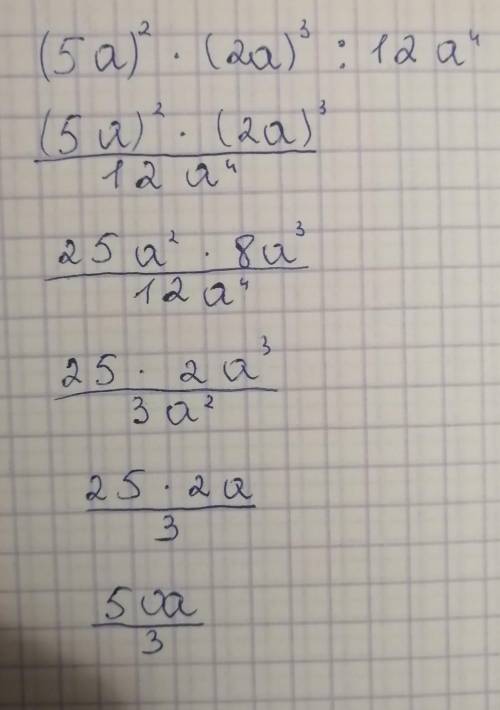 (5a)² · (2a)³ : 12a⁴
(5a)² · (2a)³
12a⁴
25a² · 8a³
12a⁴
25 · 2a³
3a²
25 · 2a
3
50a
3